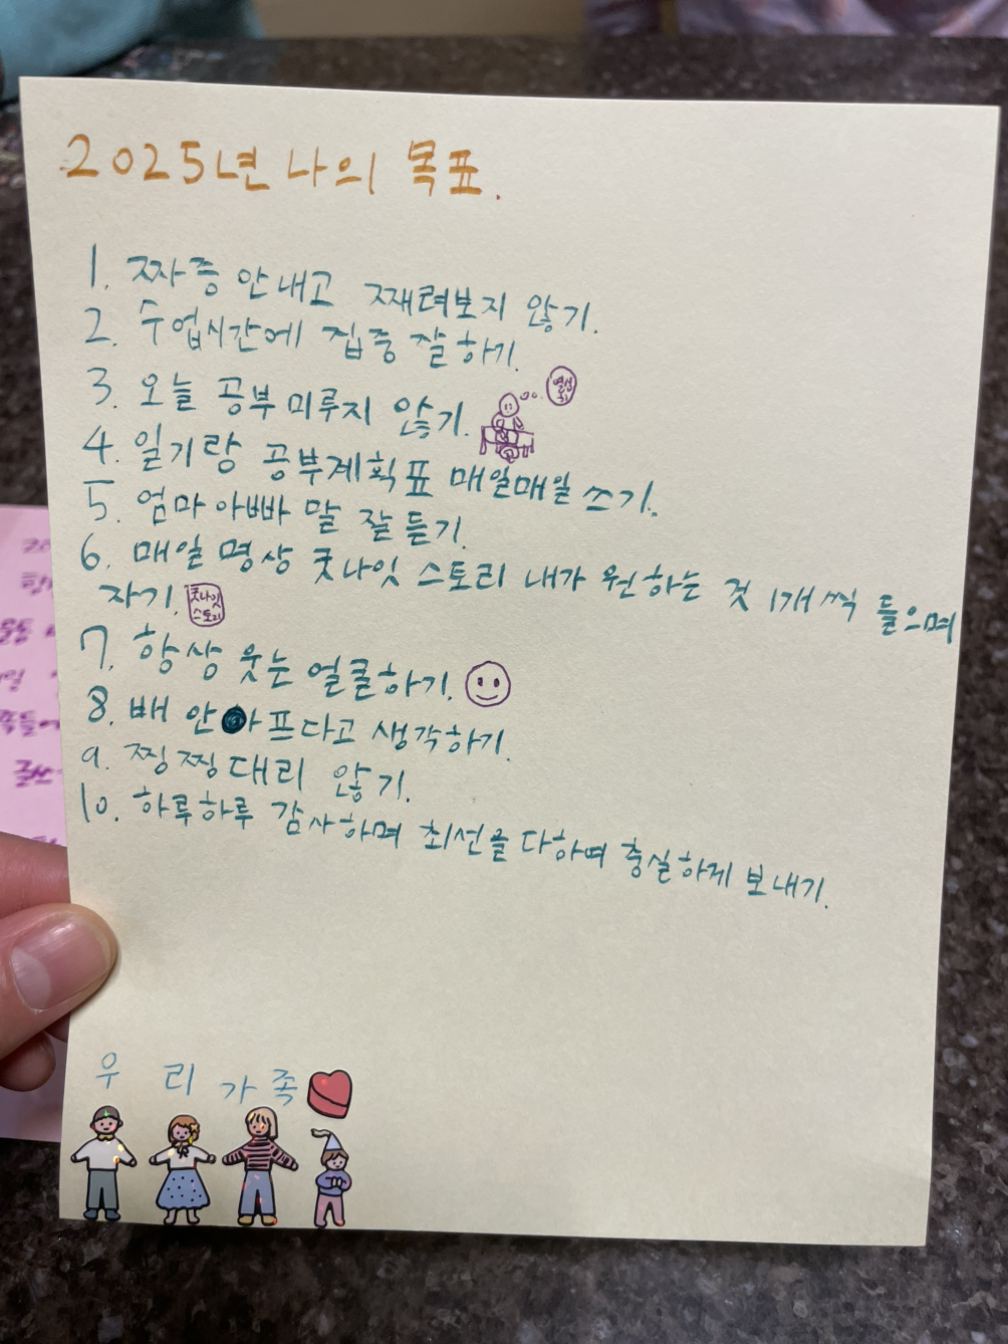 2025년 나의 목표.
1. 짜증 안내고 째려보지 않기.
2. 수업시간에 집중 잘하기.
3. 오늘 공부 미루지 않기.
4. 일기랑 공부계획표 매일매일 쓰기.
5. 엄마아빠 말 잘 듣기.
6. 매일 명상 굿나잇 스토리 내가 원하는 것 1개씩 들으며
자기.
굿나잇
스토리
7. 항상 웃는 얼굴하기.
8. 배 안아프다고 생각하기.
9. 찡찡대리 않기.
10. 하루하루 감사하며 최선을 다하며 충실하게 보내기.
우리가족